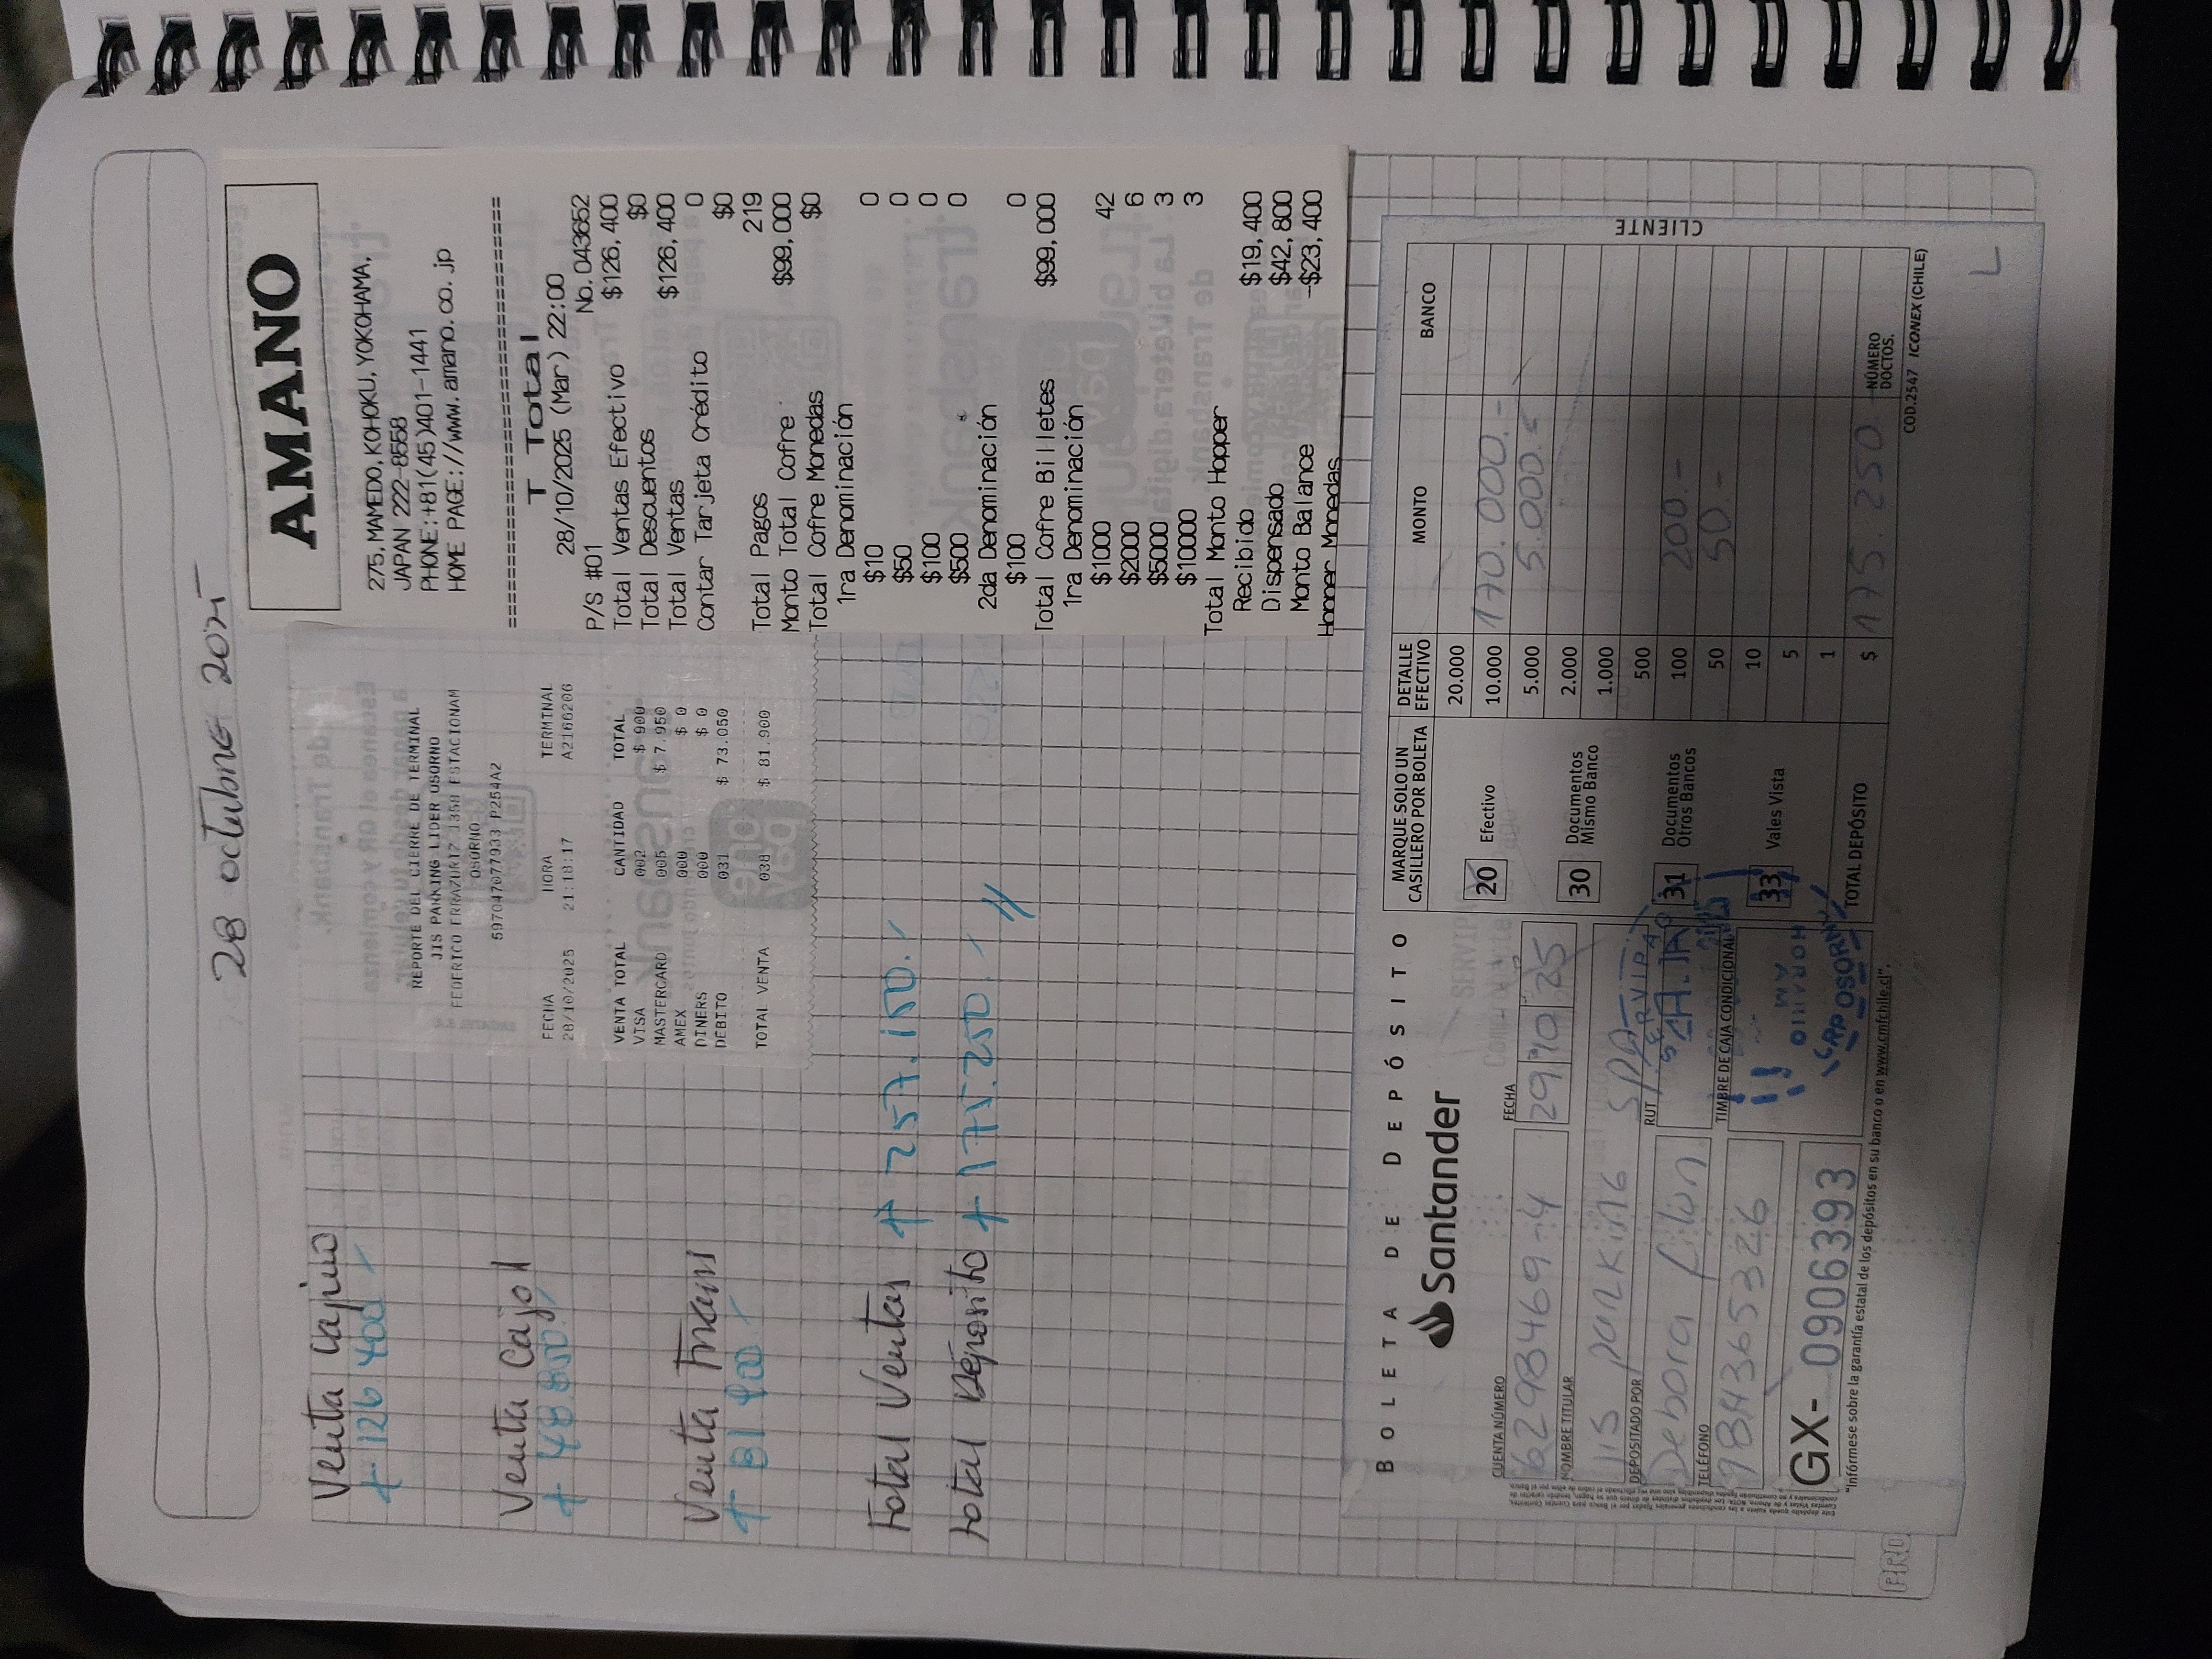 28 octubre 2025
Venta Cajero
+ 126.400
Venta Caja 1
+ 48.850.
Venta trans
+ 81.900
Total Ventas + 257.150.
Total Deposito + 175.250.
REPORTE DEL CIERRE DE TERMINAL
JIS PARKING LIDER OSORNO
FEDERICO ERRAZURIZ 1350 ESTACIONAM
OSORNO
597047077933 P254A2
FECHA HORA TERMINAL
28/10/2025 21:18:17 A2166206
VENTA TOTAL CANTIDAD TOTAL
VISA 002 $ 900
MASTERCARD 005 $ 7.950
AMEX 000 $ 0
DINERS 000 $ 0
DEBITO 031 $ 73.050
TOTAL VENTA 038 $ 81.900
AMANO
275, MAMEDO, KOHOKU, YOKOHAMA,
JAPAN 222-8558
PHONE:+81(45)401-1441
HOME PAGE://www.amano.co.jp
================================
T Total
28/10/2025 (Mar) 22:00
P/S #01 No.043652
Total Ventas Efectivo $126,400
Total Descuentos $0
Total Ventas $126,400
Contar Tarjeta Crédito 0
$0
Total Pagos 219
Monto Total Cofre $99,000
Total Cofre Monedas $0
1ra Denominación
$10 0
$50 0
$100 0
$500 0
2da Denominación
$100 0
Total Cofre Billetes $99,000
1ra Denominación
$1000 42
$2000 6
$5000 3
$10000 3
Total Monto Hopper
Recibido $19,400
Dispensado $42,800
Monto Balance -$23,400
Hopper Monedas
BOLETA DE DEPÓSITO
Santander
CUENTA NÚMERO FECHA
62983469-4 29 10 25
NOMBRE TITULAR
JIS parking SPA
DEPOSITADO POR RUT
Debora
TELÉFONO TIMBRE DE CAJA CONDICIONAL
984365326
SERVIPAG
CAJA
AM
HORARIO
CAPP OSORNO
GX- 0906393
"Infórmese sobre la garantía estatal de los depósitos en su banco o en www.cmfchile.cl".
MARQUE SOLO UN
CASILLERO POR BOLETA
20 Efectivo
30 Documentos
Mismo Banco
31 Documentos
Otros Bancos
33 Vales Vista
DETALLE
EFECTIVO MONTO BANCO
20.000
10.000 170.000.-
5.000 5.000.-
2.000
1.000
500
100 200.-
50 50.-
10
5
1
TOTAL DEPÓSITO $ 175.250.- NÚMERO
DOCTOS.
COD.2547 ICONEX (CHILE)
CLIENTE